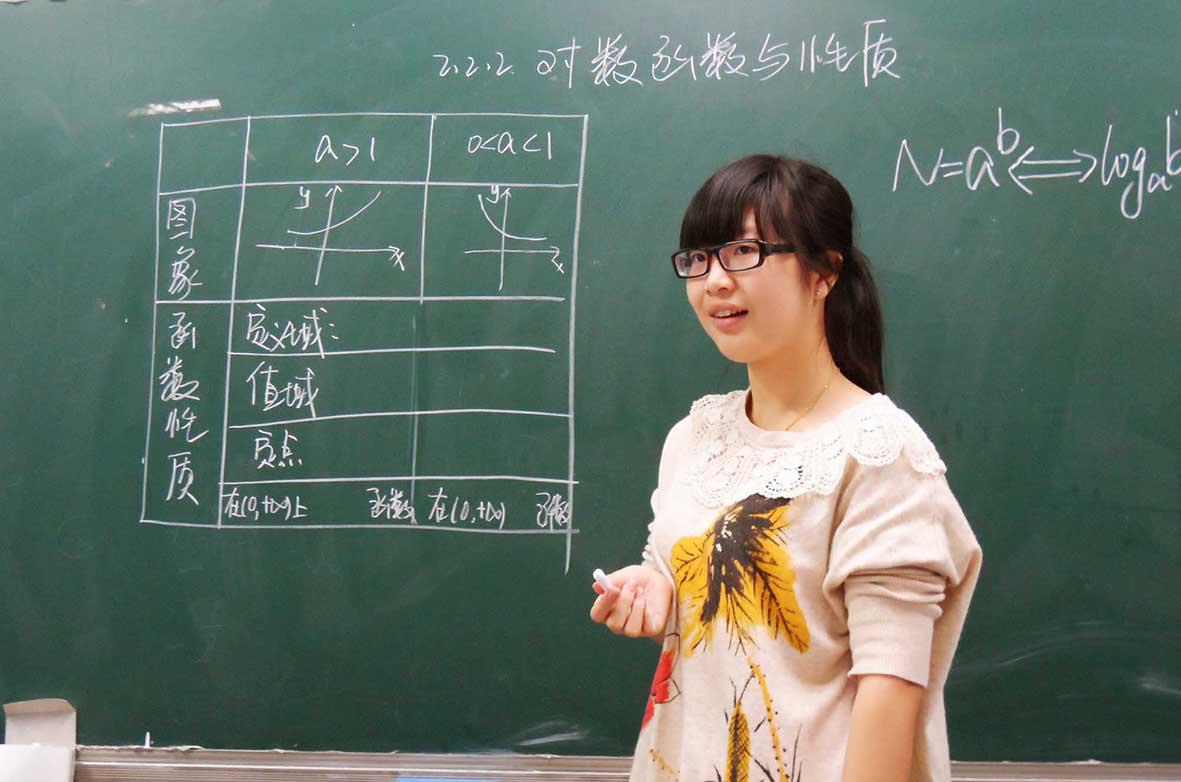 2.2.2 对数函数与性质
a>1
0<a<1
N=a^b⟺log_a b
图象
y
x
y
x
函数性质
定义域:
值域
定点
在(0,+∞)上 函数
在(0,+∞) 函数